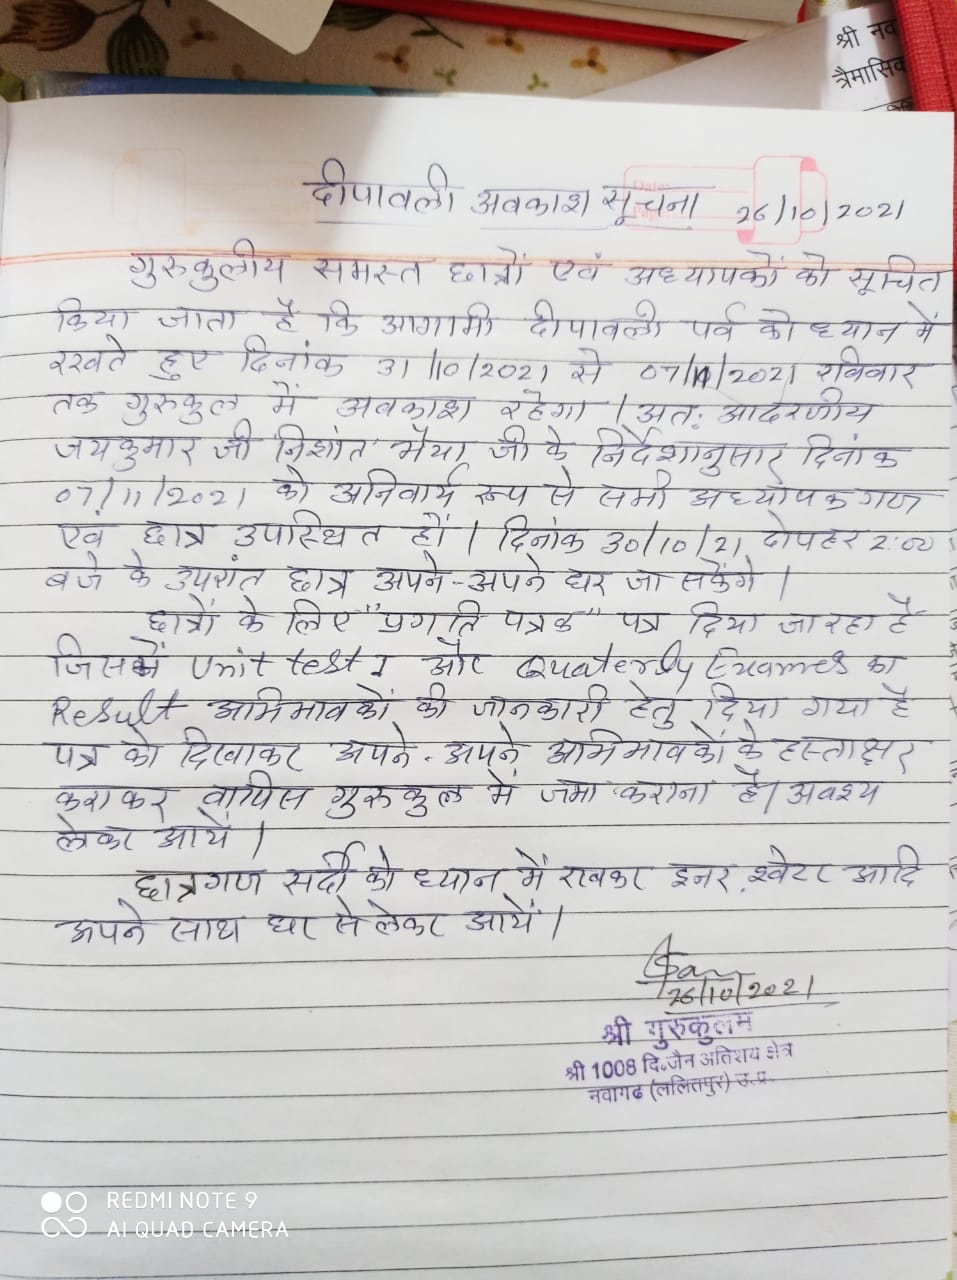 श्री नव
त्रैमासिक
दीपावली अवकाश सूचना 26/10/2021
गुरुकुलीय समस्त छात्रों एवं अध्यापकों को सूचित
किया जाता है कि आगामी दीपावली पर्व को ध्यान में
रखते हुए दिनांक 31/10/2021 से 07/11/2021 रविवार
तक गुरुकुल में अवकाश रहेगा। अतः आदरणीय
जयकुमार जी 'निशांत' भैया जी के निर्देशानुसार दिनांक
07/11/2021 को अनिवार्य रूप से सभी अध्यापकगण
एवं छात्र उपस्थित हों। दिनांक 30/10/21 दोपहर 2:00
बजे के उपरांत छात्र अपने-अपने घर जा सकेंगे।
छात्रों के लिए "प्रगति पत्रक" पत्र दिया जा रहा है
जिसमें Unit test 1 और Quaterly Exames का
Result अभिभावकों की जानकारी हेतु दिया गया है
पत्र को दिखाकर अपने-अपने अभिभावकों के हस्ताक्षर
कराकर वापिस गुरुकुल में जमा कराना है। अवश्य
लेकर आयें।
छात्रगण सर्दी को ध्यान में रखकर इनर, श्वेटर आदि
अपने साथ घर से लेकर आयें।
26/10/2021
श्री गुरुकुलम
श्री 1008 दि. जैन अतिशय क्षेत्र
नवागढ (ललितपुर) उ.प्र.
REDMI NOTE 9
AI QUAD CAMERA